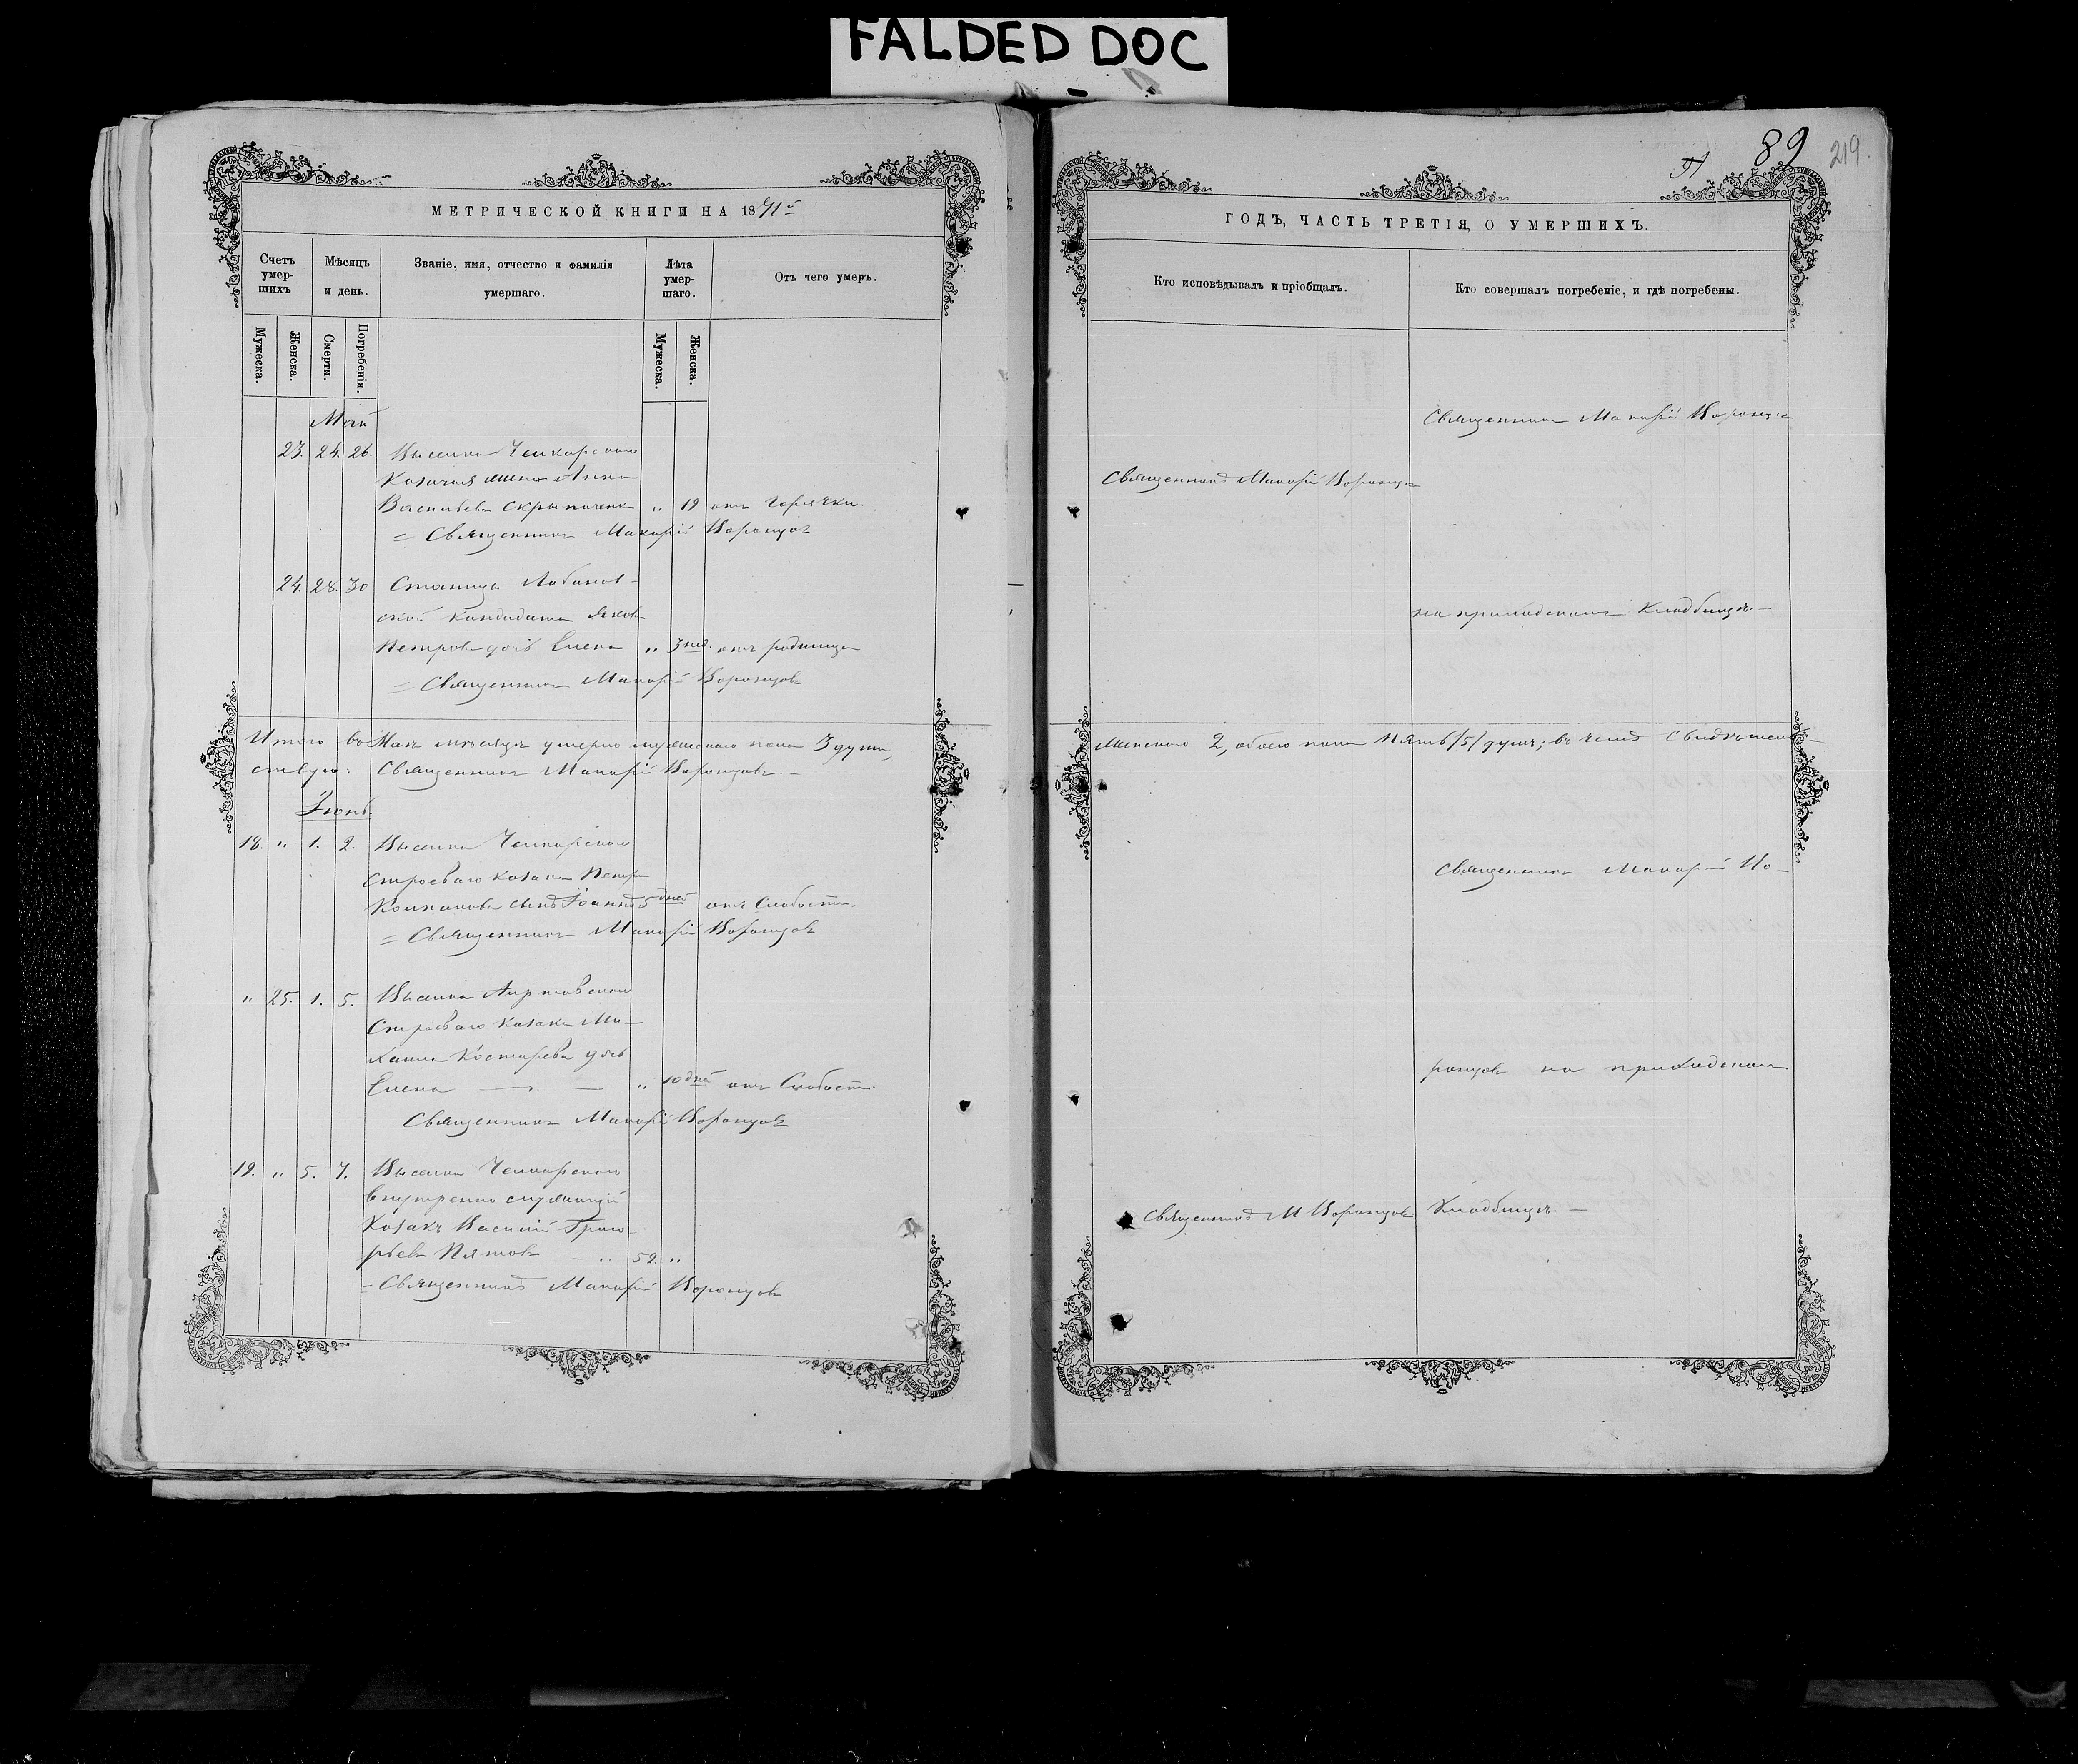 FALDED DOC
89 219.
МЕТРИЧЕСКОЙ КНИГИ НА 1871й
Счетъ умер-шихъ
Мѣсяцъ и день.
Званіе, имя, отчество и фамилія умершаго.
Лѣта умер-шаго.
Отъ чего умеръ.
Мужеска.
Женска.
Смерти.
Погребенія.
Мужеска.
Женска.
Май
23. 24. 26. Выселка Челкарскаго
Казачья жена Анна
Васильева Скрыпиченк " 19 отъ горячки.
= Священникъ Макарій Воронцовъ
24. 28. 30 Станицы Лобанов-
ской Кандидата Яков
Петрова дочь Елена " 3 нед. отъ родимца
= Священникъ Макарій Воронцовъ
Итого въ Маѣ мѣсяцѣ умерло мужескаго пола 3 души,
ствую: Священникъ Макарій Воронцовъ. –
Іюнь.
18. " 1. 2. Выселка Челкарскаго
Строеваго Казака Петр
сынъ Іоаннъ 5 дней отъ Слабости.
= Священникъ Макарій Воронцовъ
" 25. 1. 5. Выселка Аиртавскаго
Строеваго Казака Ми-
хаила Костырева дочь
Елена — " 10 дней отъ Слабости.
Священникъ Макарій Воронцовъ
19. " 5. 7. Выселка Челкарскаго
внутренно служащій
Казакъ Василій Григо
рьевъ Пятовъ " 52. "
= Священникъ Макарій Воронцовъ
ГОДЪ, ЧАСТЬ ТРЕТІЯ, О УМЕРШИХЪ.
Кто исповѣдывалъ и пріобщалъ.
Кто совершалъ погребеніе, и гдѣ погребены.
Священникъ Макарій Воронцо
Священникъ Макарій Воронцо
на приходскомъ Кладбищѣ. —
Женскаго 2, обоего пола Пять /5/ душъ; въ чемъ Свидѣтель-
Священникъ Макарій Во-
ронцовъ на приходском
Священникъ М Воронцовъ Кладбищѣ. —